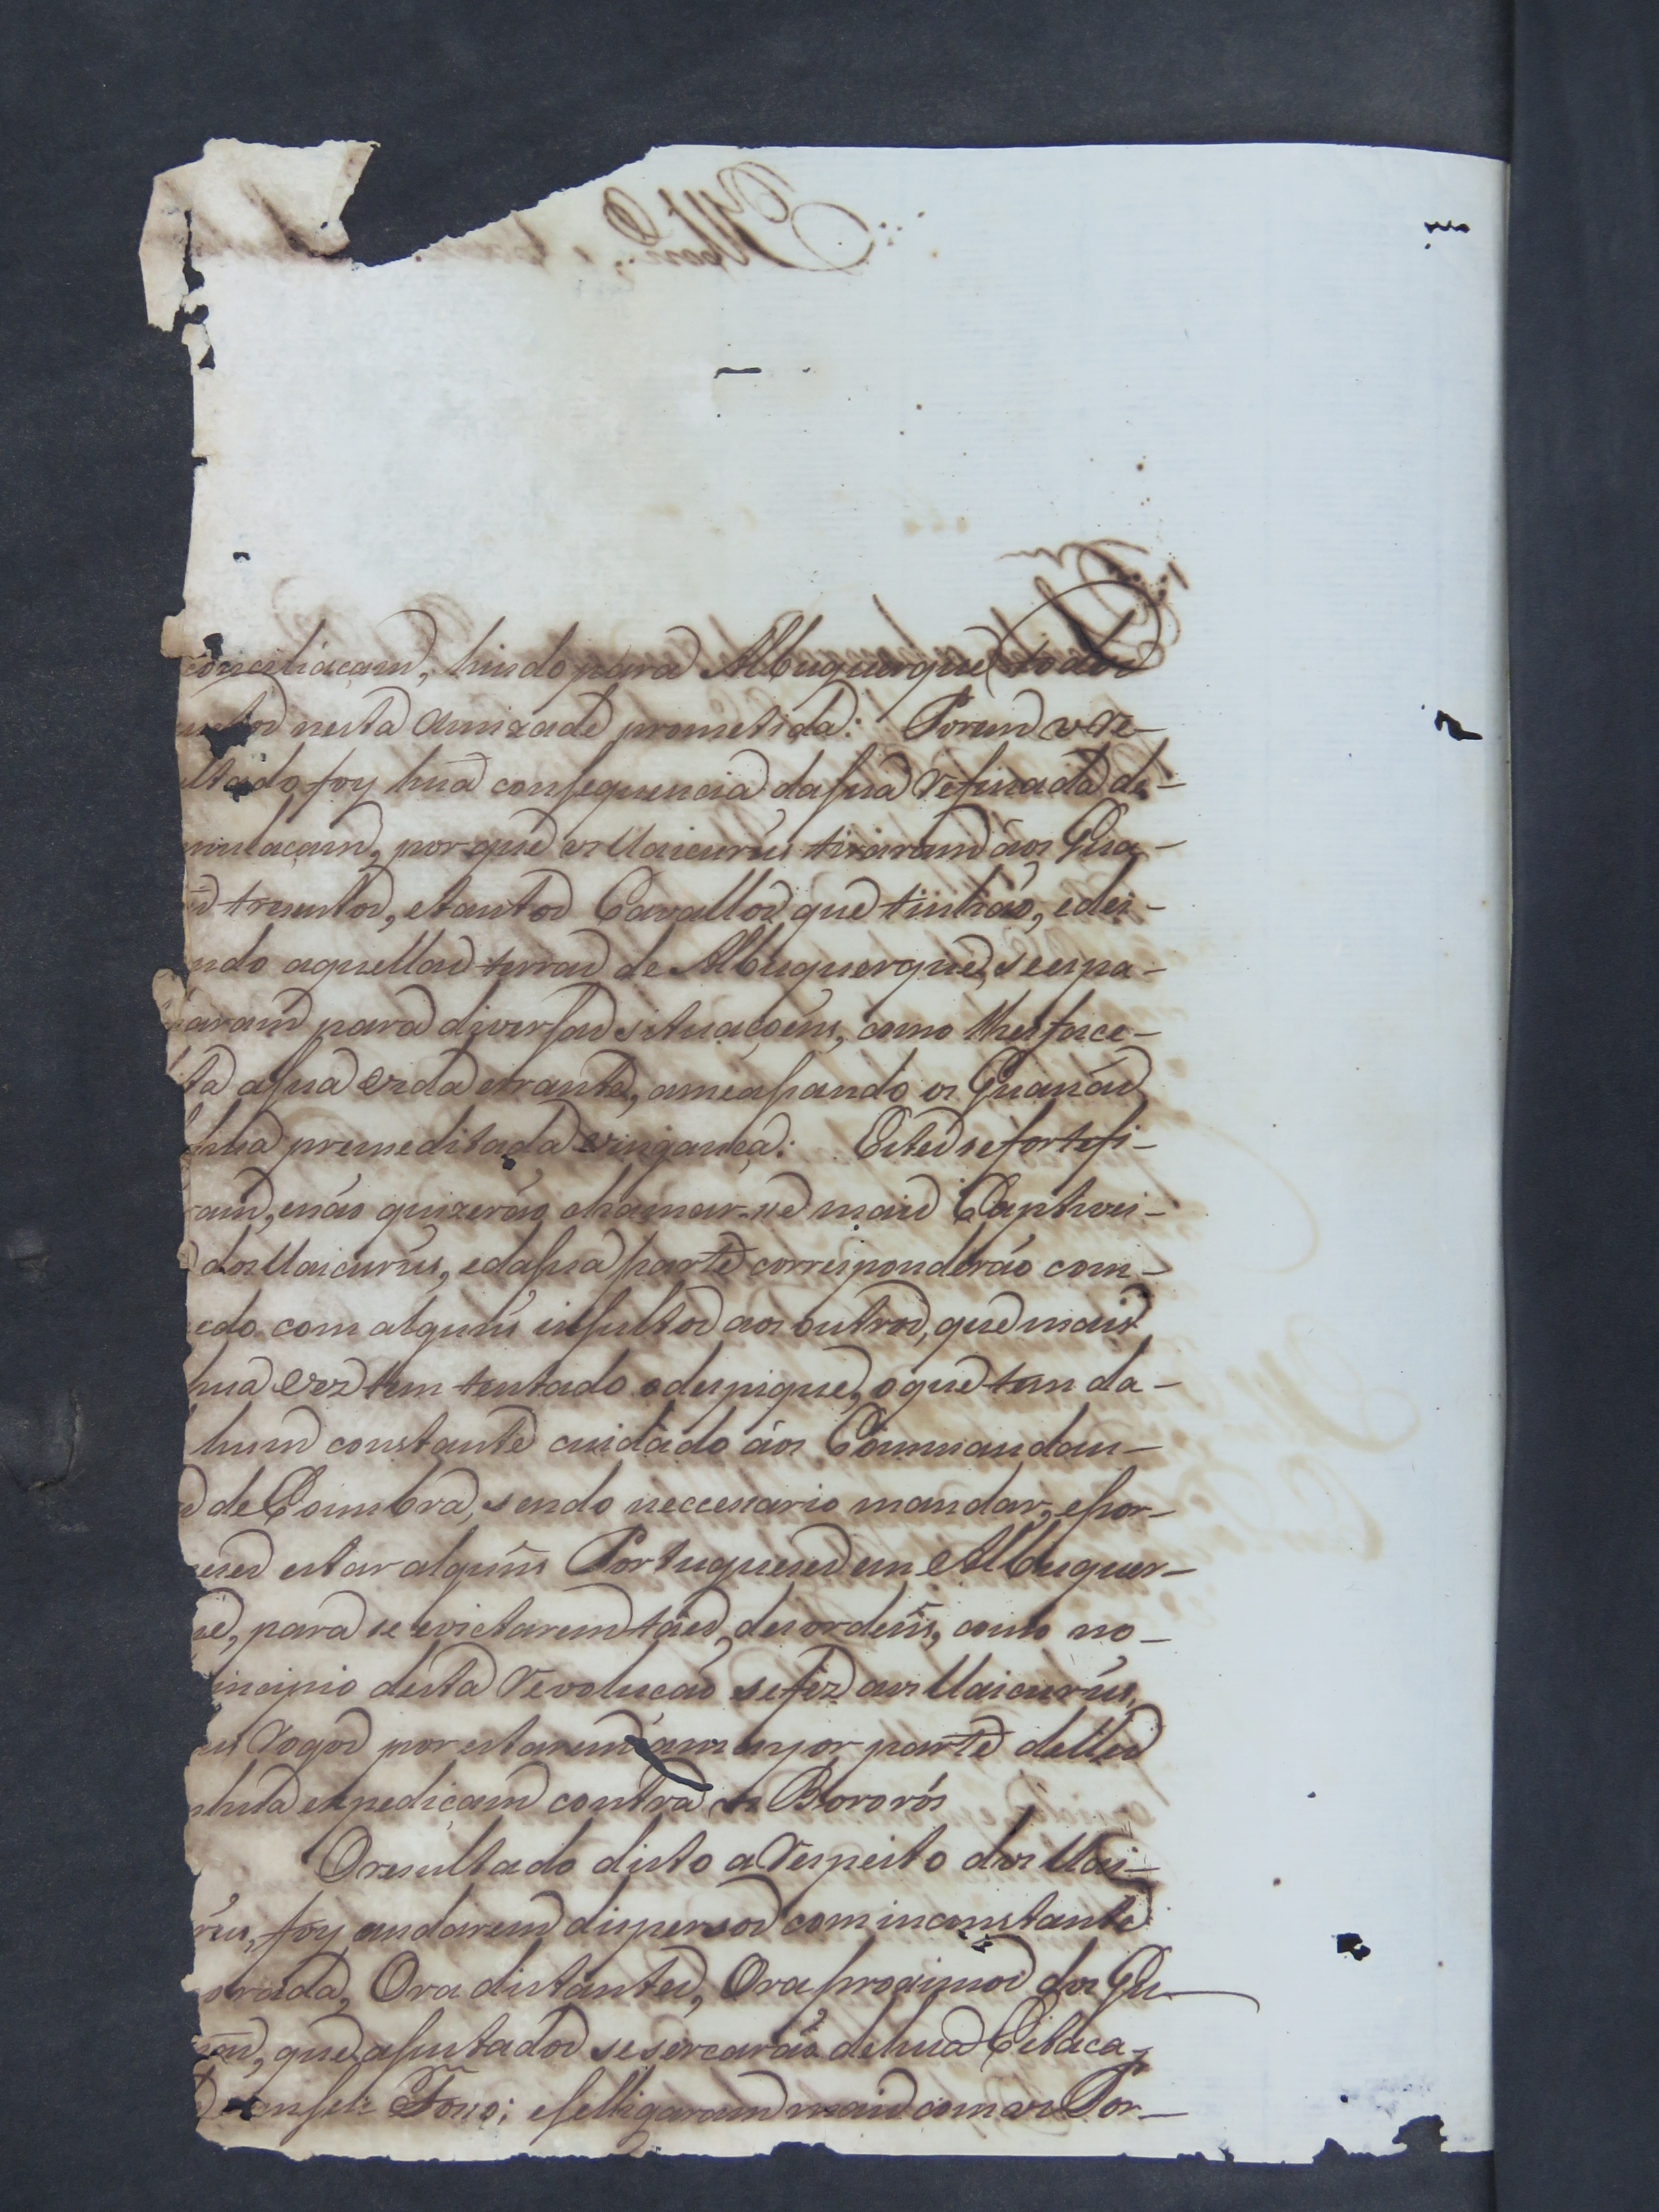 conciliaçam, hindo para Albuquerque todos
nesta amizade prometida: Porem o re-
ltado foy hua consequencia da sua refinada de-
mulaçam, porque os Uaicurús tiraram áos Gua-
trezentos, e tantos Cavallos que tinhão, e dei-
ndo aquellas terras de Albuquerque, se espa-
aram para diversas situaçoens, como lhes face-
ta a sua vida errante, ameassando os Guanás
hua premeditada vingança: Estes se fortefi-
ram, e não quizerão chamar-se mais Captivei-
dos Uaicurús, e da sua parte corresponderão com
edo com alguns insultos aos outros, que mais
hua vez tem tentado o despique, o que tem da-
hum constante cuidado áos Commandan-
de Coimbra, sendo neccessario mandar, e por-
estar alguns Portuguezes em Albuquer-
e, para se evictarem taes desordens, como no
incipio desta revolução se fez aos Uaicurús,
es rogos por estarem a mayor parte delles
hua expediçam contra os Bororós
O resultado disto a respeito dos Uai-
rus, foy andarem dispersos com inconstante
orada, Ora distantes, Ora proximos dos Gu-
que assustados se sercarão de hua Estaca-
Fosso; e se ligaram mais com os Por-